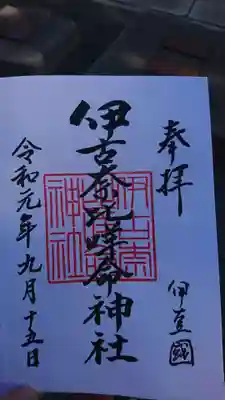 奉拝
伊豆國
伊古奈比咩命神社
令和元年九月十五日